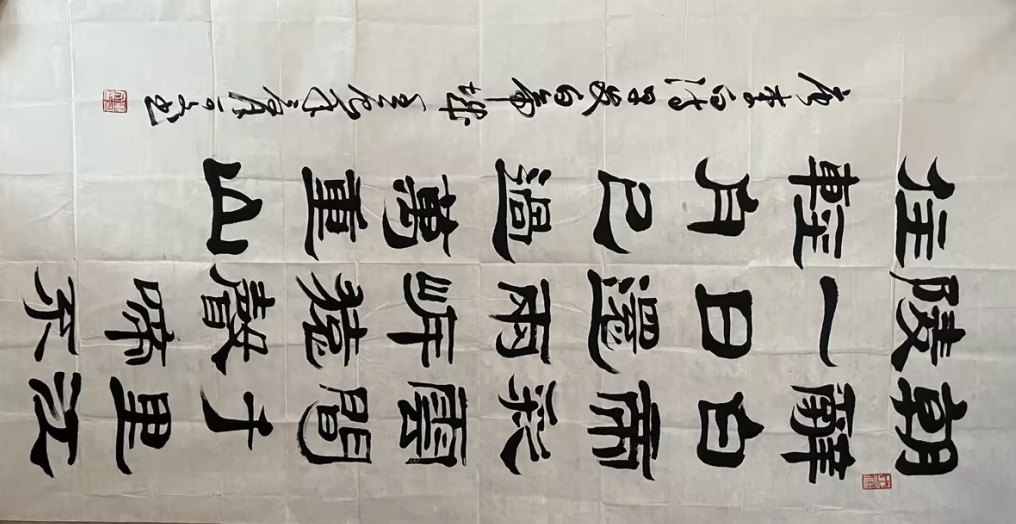 朝辭白帝彩雲間千里江
陵一日還兩岸猿聲啼不
住輕舟已過萬重山
唐李白詩早發白帝城